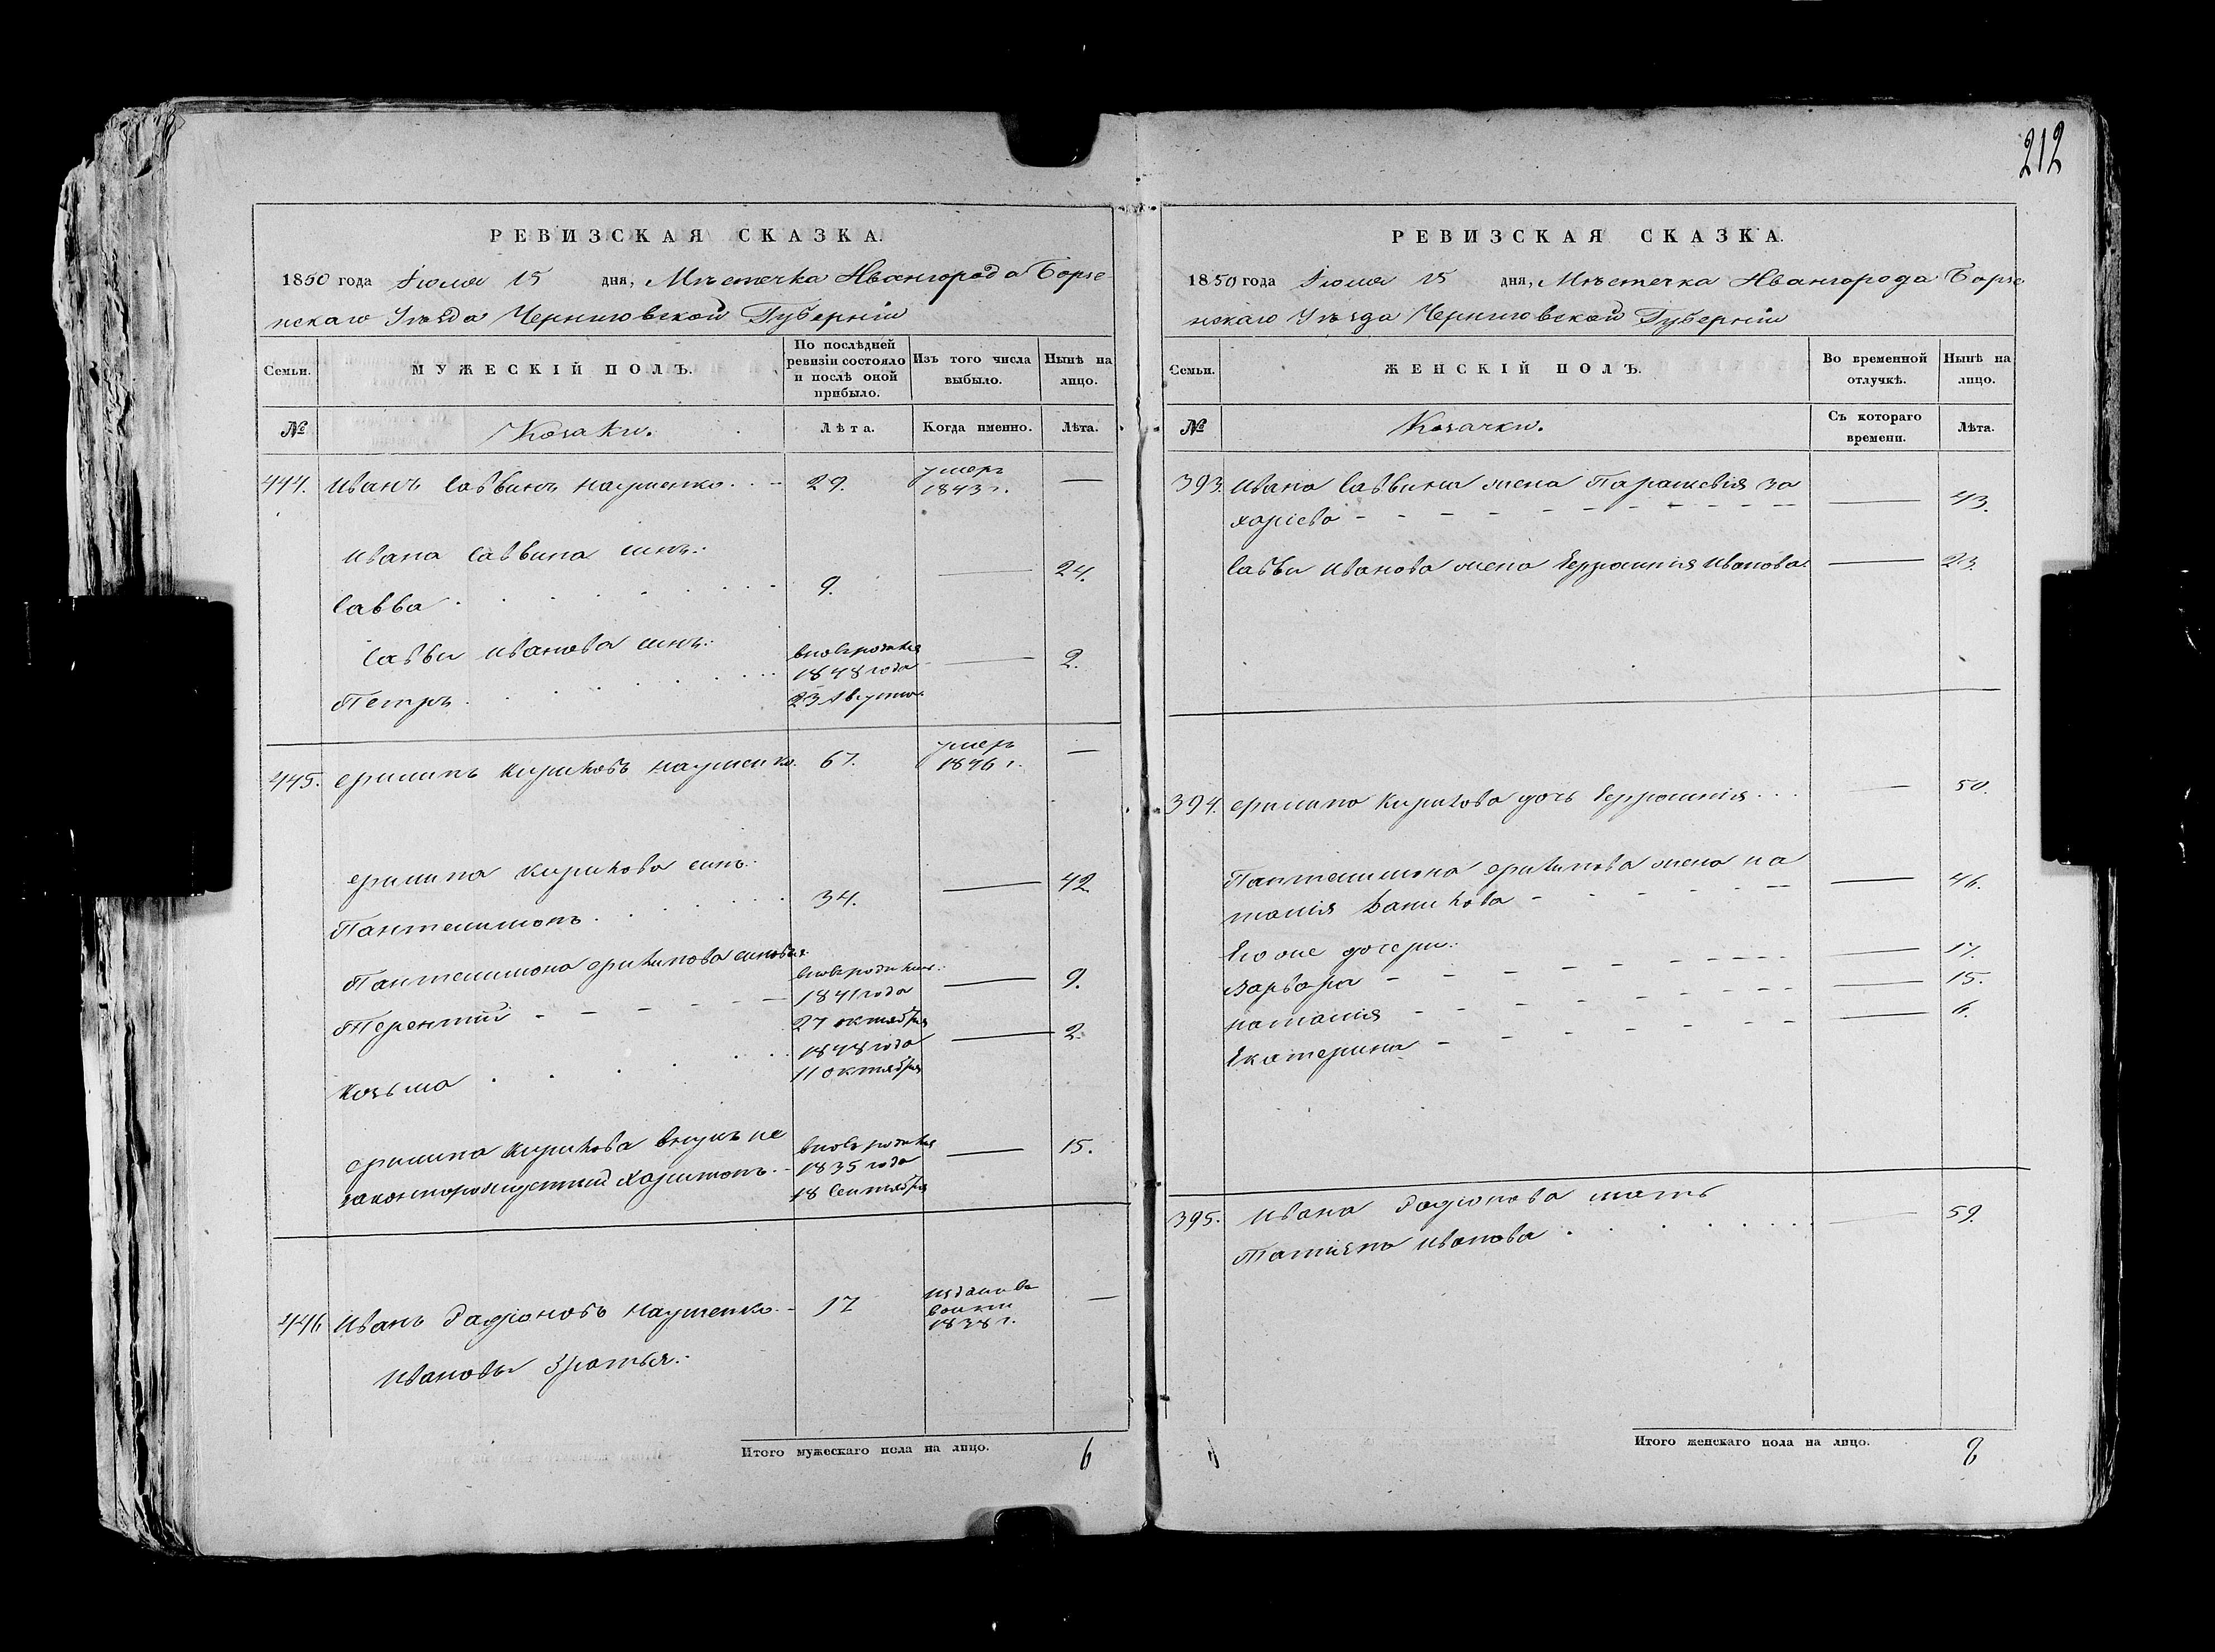 212
РЕВИЗСКАЯ СКАЗКА.
1850 года Іюля 15 дня, Мѣстечка Ивангорода Борзе
нскаго Уѣзда Черниговской Губерніи
Семьи.
МУЖЕСКІЙ ПОЛЪ.
По послѣдней
ревизіи состояло
и послѣ оной
прибыло.
Изъ того числа
выбыло.
Нынѣ на
лицо.
№
Козаки.
Лѣта.
Когда именно.
Лѣта.
444. Иванъ Саввинъ Науменко 29. умеръ
1843 г. —
Ивана Саввина сынъ:
Савва 9. — 24.
Саввы Иванова сынъ:
Петръ
вновьрожден
1848 года
23 Августа
— 2.
445. Филипъ Кириковъ Науменко. 67. умеръ
1846 г. —
Филипа Кирикова сынъ:
Пантелимонъ 34. — 42
Пантелимона Филипова сыновья
Терентий
вновьрожден:
1841 года
27 октября
— 9.
Козьма
1848 года
11 октября
— 2.
Филипа Кирикова внукъ не
законнорожденный Харитонъ.
вновьрожден
1835 года
18 Сентября
— 15.
446 Иванъ Радіоновъ Науменко 17
1838 г. —
Ивановы братья:
Итого мужескаго пола на лицо. 6
РЕВИЗСКАЯ СКАЗКА.
1850 года Іюля 15 дня, Мѣстечка Ивангорода Борзе
нскаго Уѣзда Черниговской Губерніи
Семьи.
ЖЕНСКІЙ ПОЛЪ.
Во временной
отлучкѣ.
Нынѣ на
лицо.
№
Козачки.
Съ котораго
времени.
Лѣта.
393. Ивана Саввина жена Параскевія За
харіева — 43.
Саввы Иванова жена Евфросинія Иванова — 23.
394. Филипа Кирикова дочь Евфросинія — 50.
Пантелимона Филипова жена На
талія Данилова — 46.
Его же дочери:
Варвара — 17.
Наталія — 15.
Екатерина — 6.
395. Ивана Радіонова мать
Татіяна Иванова — 59.
Итого женскаго пола на лицо. 8